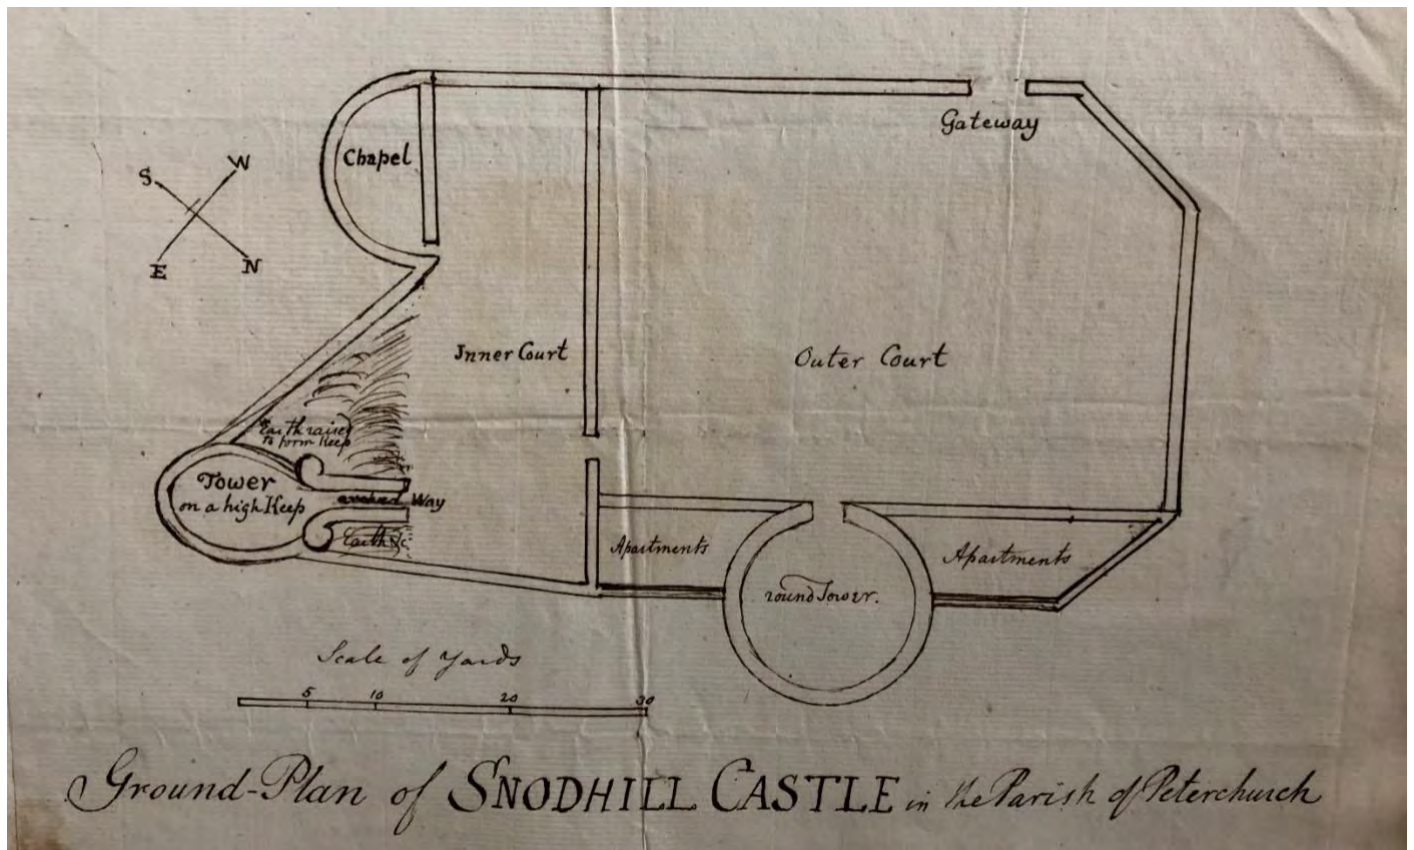 Gateway
Chapel
W
S
E
N
Inner Court
Outer Court
Earth raised
to form Keep
Tower
on a high Keep
arched Way
Earth &c
Apartments
Apartments
round Tower.
Scale of Yards
5 10 20 30
Ground-Plan of SNODHILL CASTLE in the Parish of Peterchurch